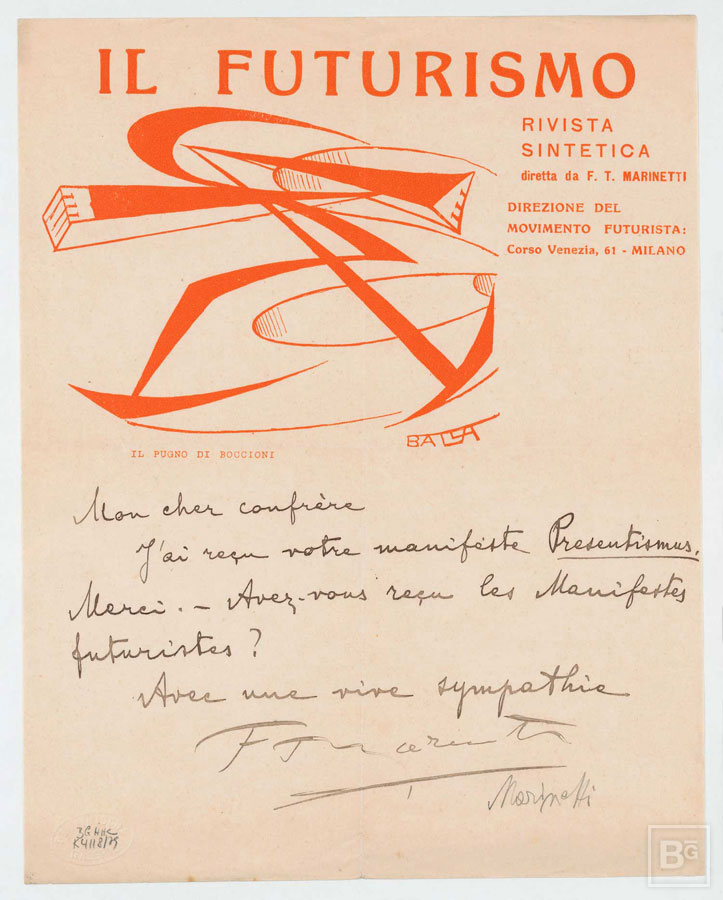 IL FUTURISMO
RIVISTA
SINTETICA
diretta da F. T. MARINETTI
DIREZIONE DEL
MOVIMENTO FUTURISTA:
Corso Venezia, 61 - MILANO
BALLA
IL PUGNO DI BOCCIONI
Mon cher confrère
J'ai reçu votre manifeste Presentismus.
Merci. — Avez-vous reçu les Manifestes
futuristes ?
Avec une vive sympathie
F T Marinetti
Marinetti
BG